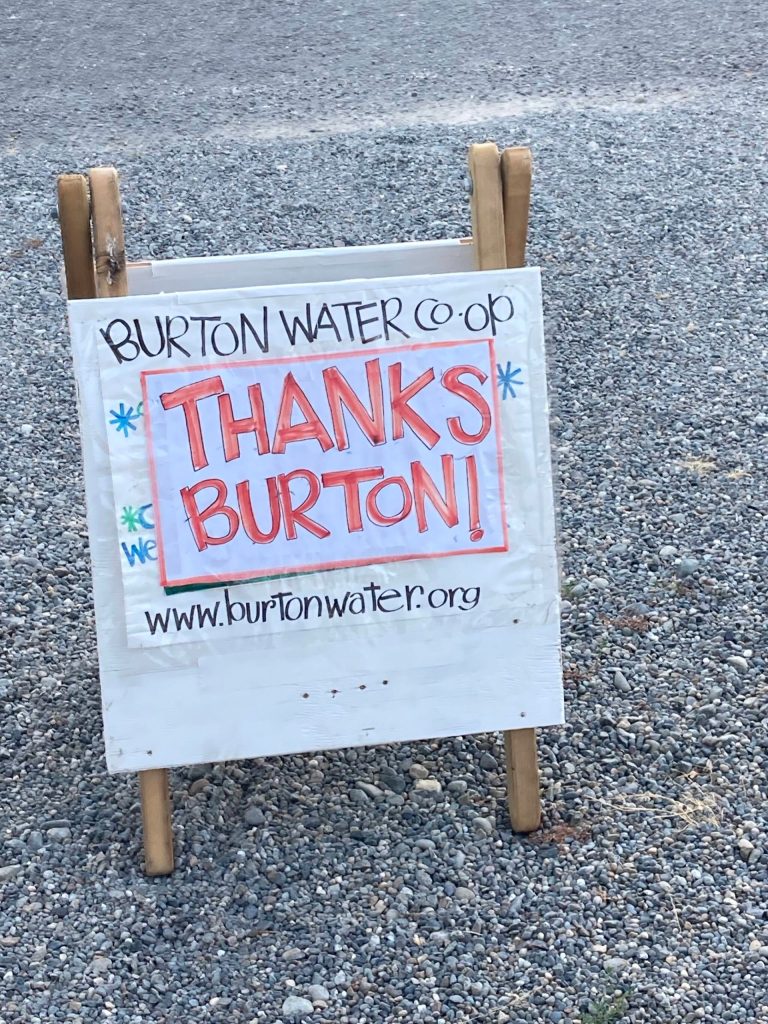 BURTON WATER CO-OP
THANKS
BURTON!
We
www.burtonwater.org